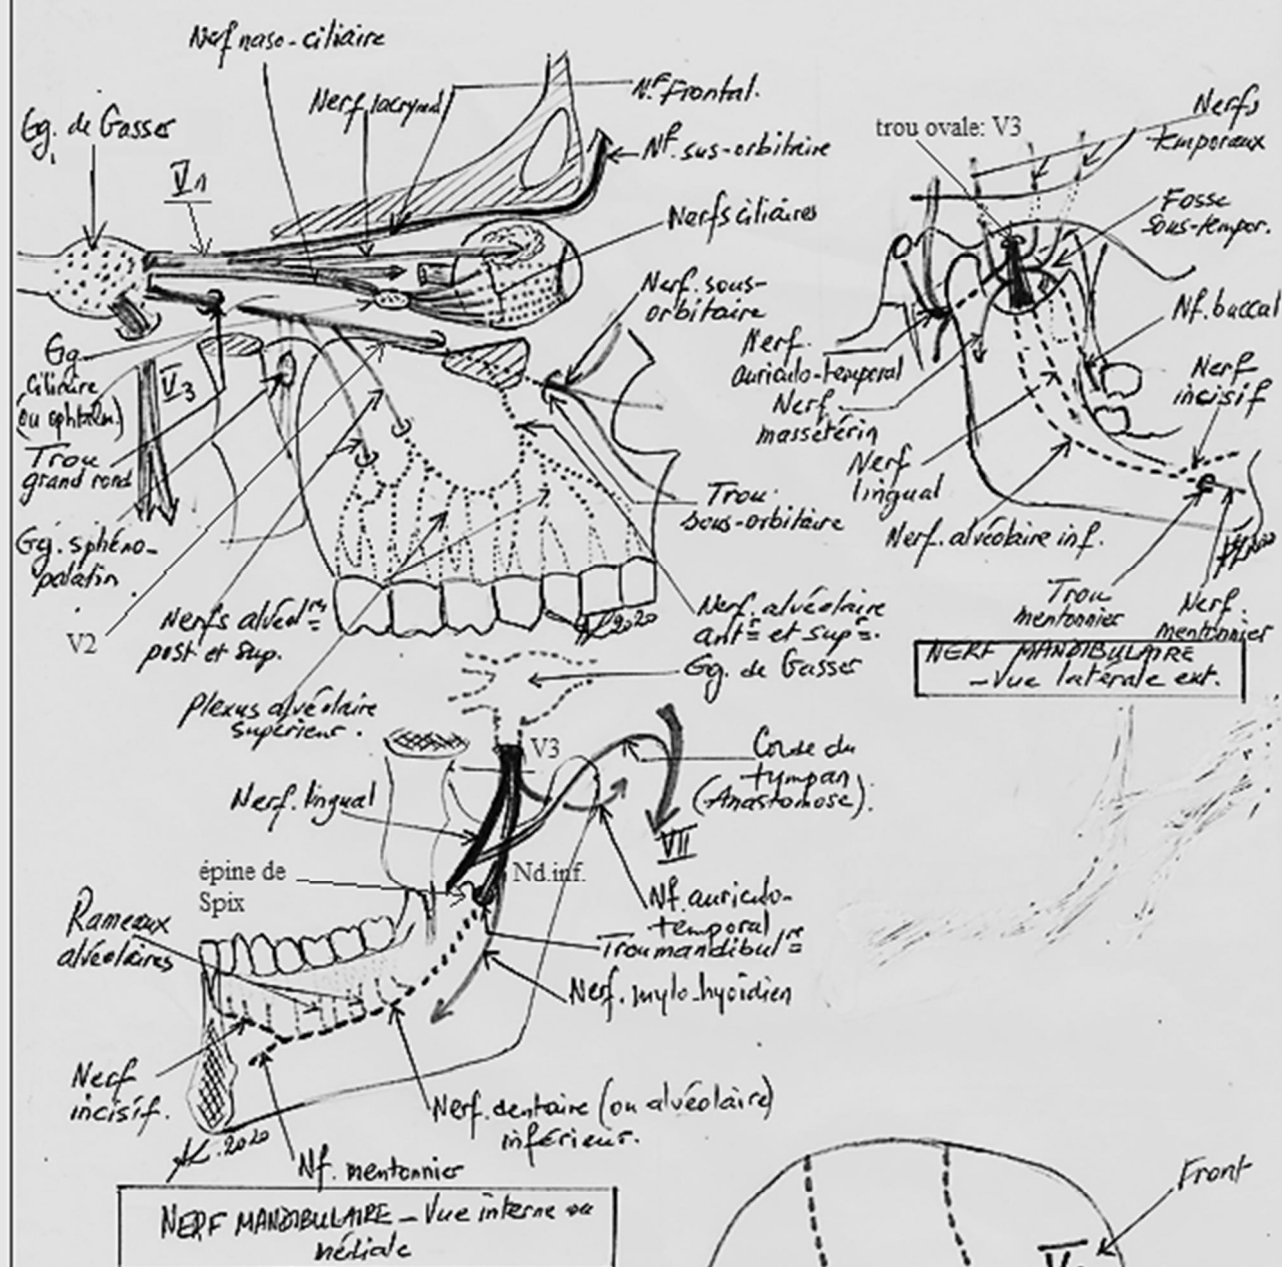 Nerf naso-ciliaire
Nerf lacrymal
Nf Frontal.
Gg. de Gasser
V1
Nf. sus-orbitaire
Nerfs ciliaires
Nerf. sous-
orbitaire
Gg.
ciliaire
(ou ophtalm.)
V3
Trou
grand rond
Gg. sphéno-
palatin
V2
Nerfs alvéolres
post et sup.
Plexus alvéolaire
supérieur.
Trou
sous-orbitaire
Nerf. alvéolaire
antr et supr.
2020
trou ovale: V3
Nerfs
temporaux
Fosse
sous-tempor.
Nf. buccal
Nerf
incisif
Nerf.
auriculo-temporal
Nerf
massétérin
Nerf
lingual
Nerf. alvéolaire inf.
Trou
mentonnier
Nerf.
mentonnier
NERF MANDIBULAIRE
- Vue latérale ext.
Gg. de Gasser
V3
Corde du
tympan
(Anastomose).
VII
Nerf. lingual
épine de
Spix
Nd.inf.
Nf. auriculo-
temporal
Trou mandibulre
Nerf. mylo-hyoïdien
Rameaux
alvéolaires
Nerf
incisif.
Nerf. dentaire (ou alvéolaire)
inférieur.
2020
Nf. mentonnier
NERF MANDIBULAIRE - Vue interne ou
médiale
Front